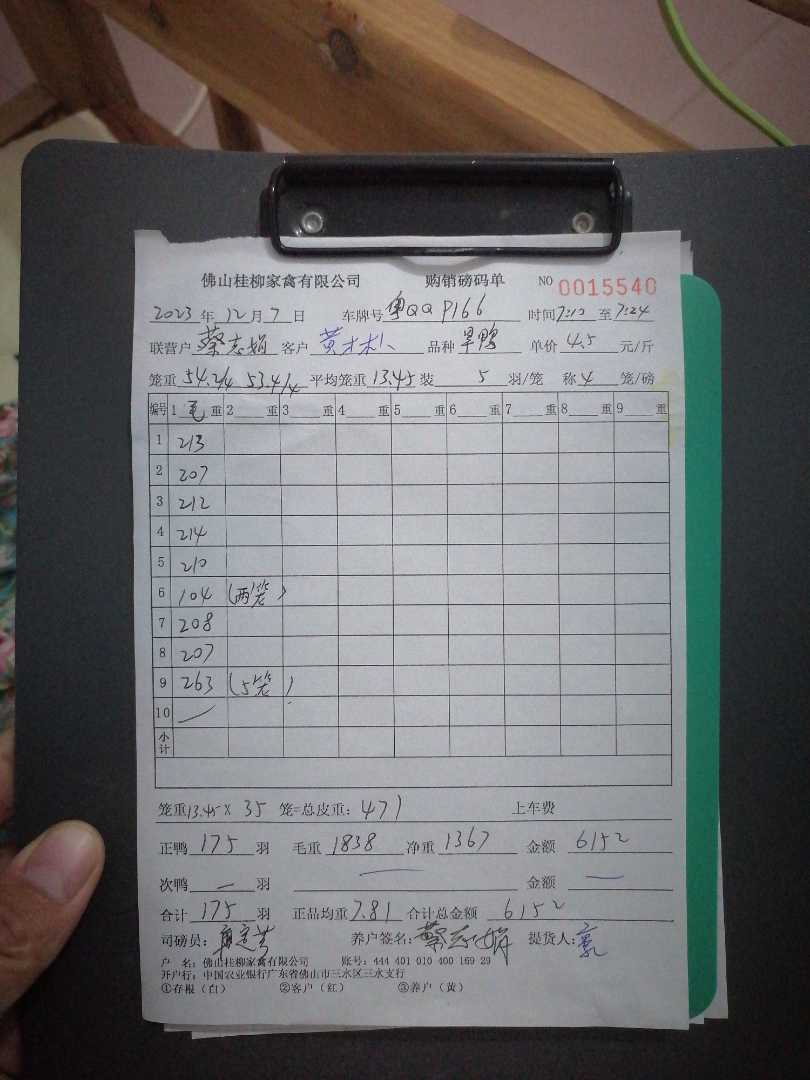 佛山桂柳家禽有限公司 购销磅码单 NO 0015540
2023年12月7日 车牌号粤QQP166 时间7:10至7:24
联营户蔡志娟 客户黄木林 品种旱鸭 单价4.5元/斤
笼重54.2/4 53.4/4 平均笼重13.45装5羽/笼 称4笼/磅
编号 1毛重 2重 3重 4重 5重 6重 7重 8重 9重
1 213
2 207
3 212
4 214
5 210
6 104 (两笼)
7 208
8 207
9 263 (5笼)
10
小计
笼重13.45×35笼=总皮重:471 上车费
正鸭175羽 毛重1838 净重1367 金额6152
次鸭—羽 — 金额—
合计175羽 正品均重7.81 合计总金额6152
司磅员: 养户签名:蔡志娟 提货人:
户 名:佛山桂柳家禽有限公司 账号:444 401 010 400 169 29
开户行:中国农业银行广东省佛山市三水区三水支行
①存根(白) ②客户(红) ③养户(黄)